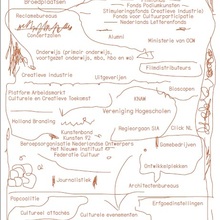 Broedplaatsen
Fonds Podiumkunsten
Stimuleringsfonds Creatieve Industrie
Fonds voor Cultuurparticipatie
Nederlands Letterenfonds
Reclamebureaus
Concertzalen
Alumni
Ministerie van OCW
Onderwijs (primair onderwijs,
voortgezet onderwijs, mbo, hbo en wo)
Filmdistributeurs
Creatieve Industrie
Uitgeverijen
Bioscopen
Platform Arbeidsmarkt
Culturele en Creatieve Toekomst
KNAW
Vereniging Hogescholen
Holland Branding
Regieorgaan SIA
Click NL
Kunstenbond
Kunsten '92
Beroepsorganisatie Nederlandse Ontwerpers
Het Nieuwe Instituut
Federatie Cultuur
Gamesbedrijven
Ontwikkelplekken
Journalistiek
Architectenbureaus
Poppodia
Erfgoedinstellingen
Cultureel attachés
Culturele evenementen